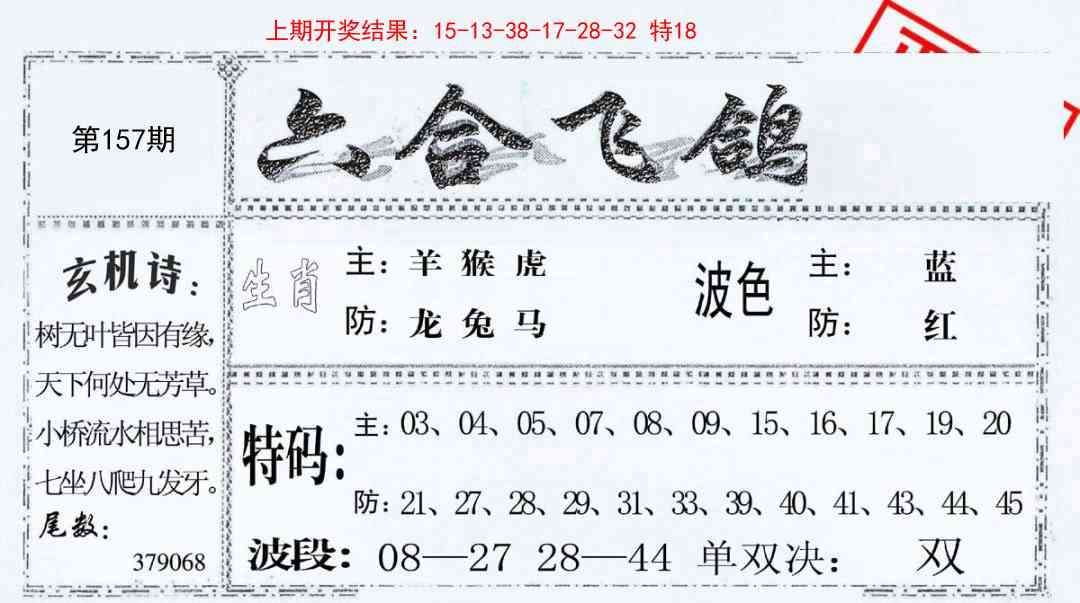 上期开奖结果：15-13-38-17-28-32 特18
第157期
六合飞鸽
玄机诗：
树无叶皆因有缘，
天下何处无芳草。
小桥流水相思苦，
七坐八爬九发牙。
尾数：
379068
生肖
主：羊 猴 虎
防：龙 兔 马
波色
主： 蓝
防： 红
特码：
主：03、04、05、07、08、09、15、16、17、19、20
防：21、27、28、29、31、33、39、40、41、43、44、45
波段：08—27 28—44 单双决： 双